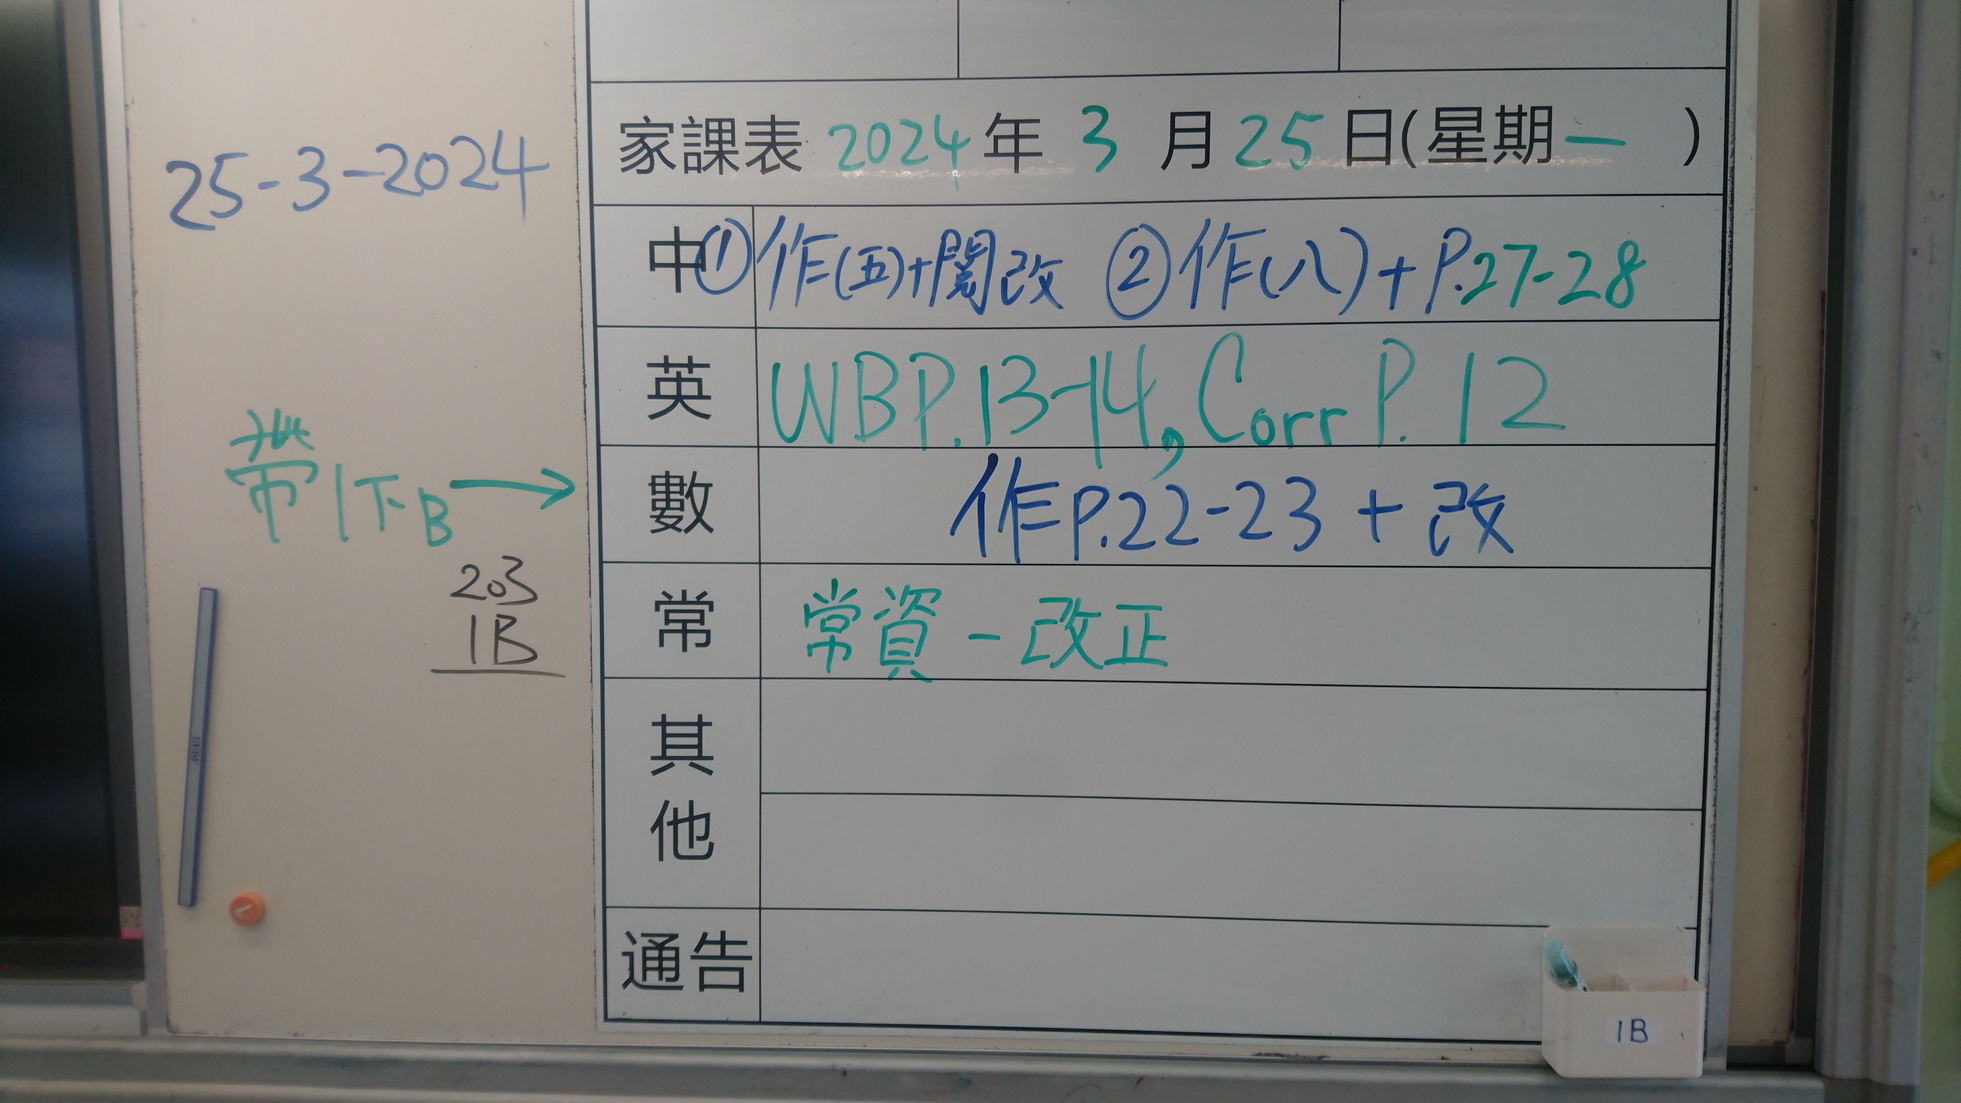 25-3-2024
帶1下B→
203
1B
家課表 2024年 3 月 25日(星期一 )
中 ①作(五)+閱改 ②作(八)+P.27-28
英 WBP.13-14, Corr P. 12
數 作P.22-23 + 改
常 常資-改正
其他
通告
1B